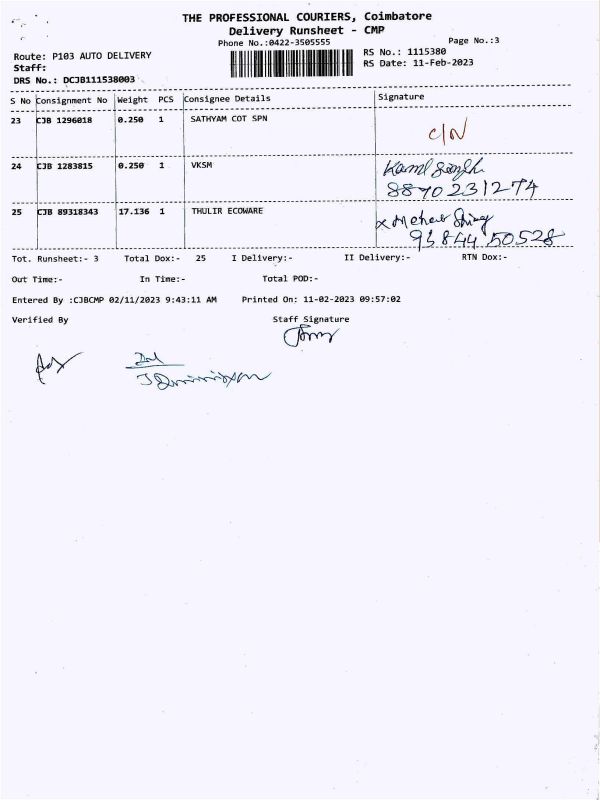 THE PROFESSIONAL COURIERS, Coimbatore
Delivery Runsheet - CMP
Phone No.:0422-3505555
Page No.:3
Route: P103 AUTO DELIVERY
RS No.: 1115380
Staff:
RS Date: 11-Feb-2023
DRS No.: DCJB111538003
S No Consignment No Weight PCS Consignee Details Signature
23 CJB 1296018 0.250 1 SATHYAM COT SPN
C/N
24 CJB 1283815 0.250 1 VKSM
8870231274
25 CJB 89318343 17.136 1 THULIR ECOWARE
95844 50528
Tot. Runsheet:- 3 Total Dox:- 25 I Delivery:- II Delivery:- RTN Dox:-
Out Time:- In Time:- Total POD:-
Entered By :CJBCMP 02/11/2023 9:43:11 AM Printed On: 11-02-2023 09:57:02
Verified By Staff Signature